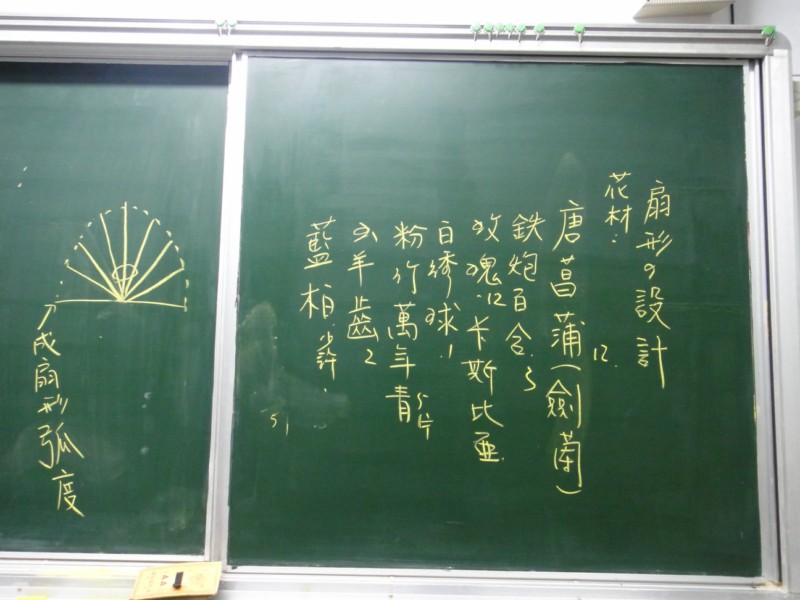 扇形の設計
花材：
唐菖蒲（劍蘭） 12.
鉄炮百合 5
玫瑰12 卡斯比亜
白绣球1
粉竹萬年青 5片
羊齒2
藍柏 少許.
成扇形弧度